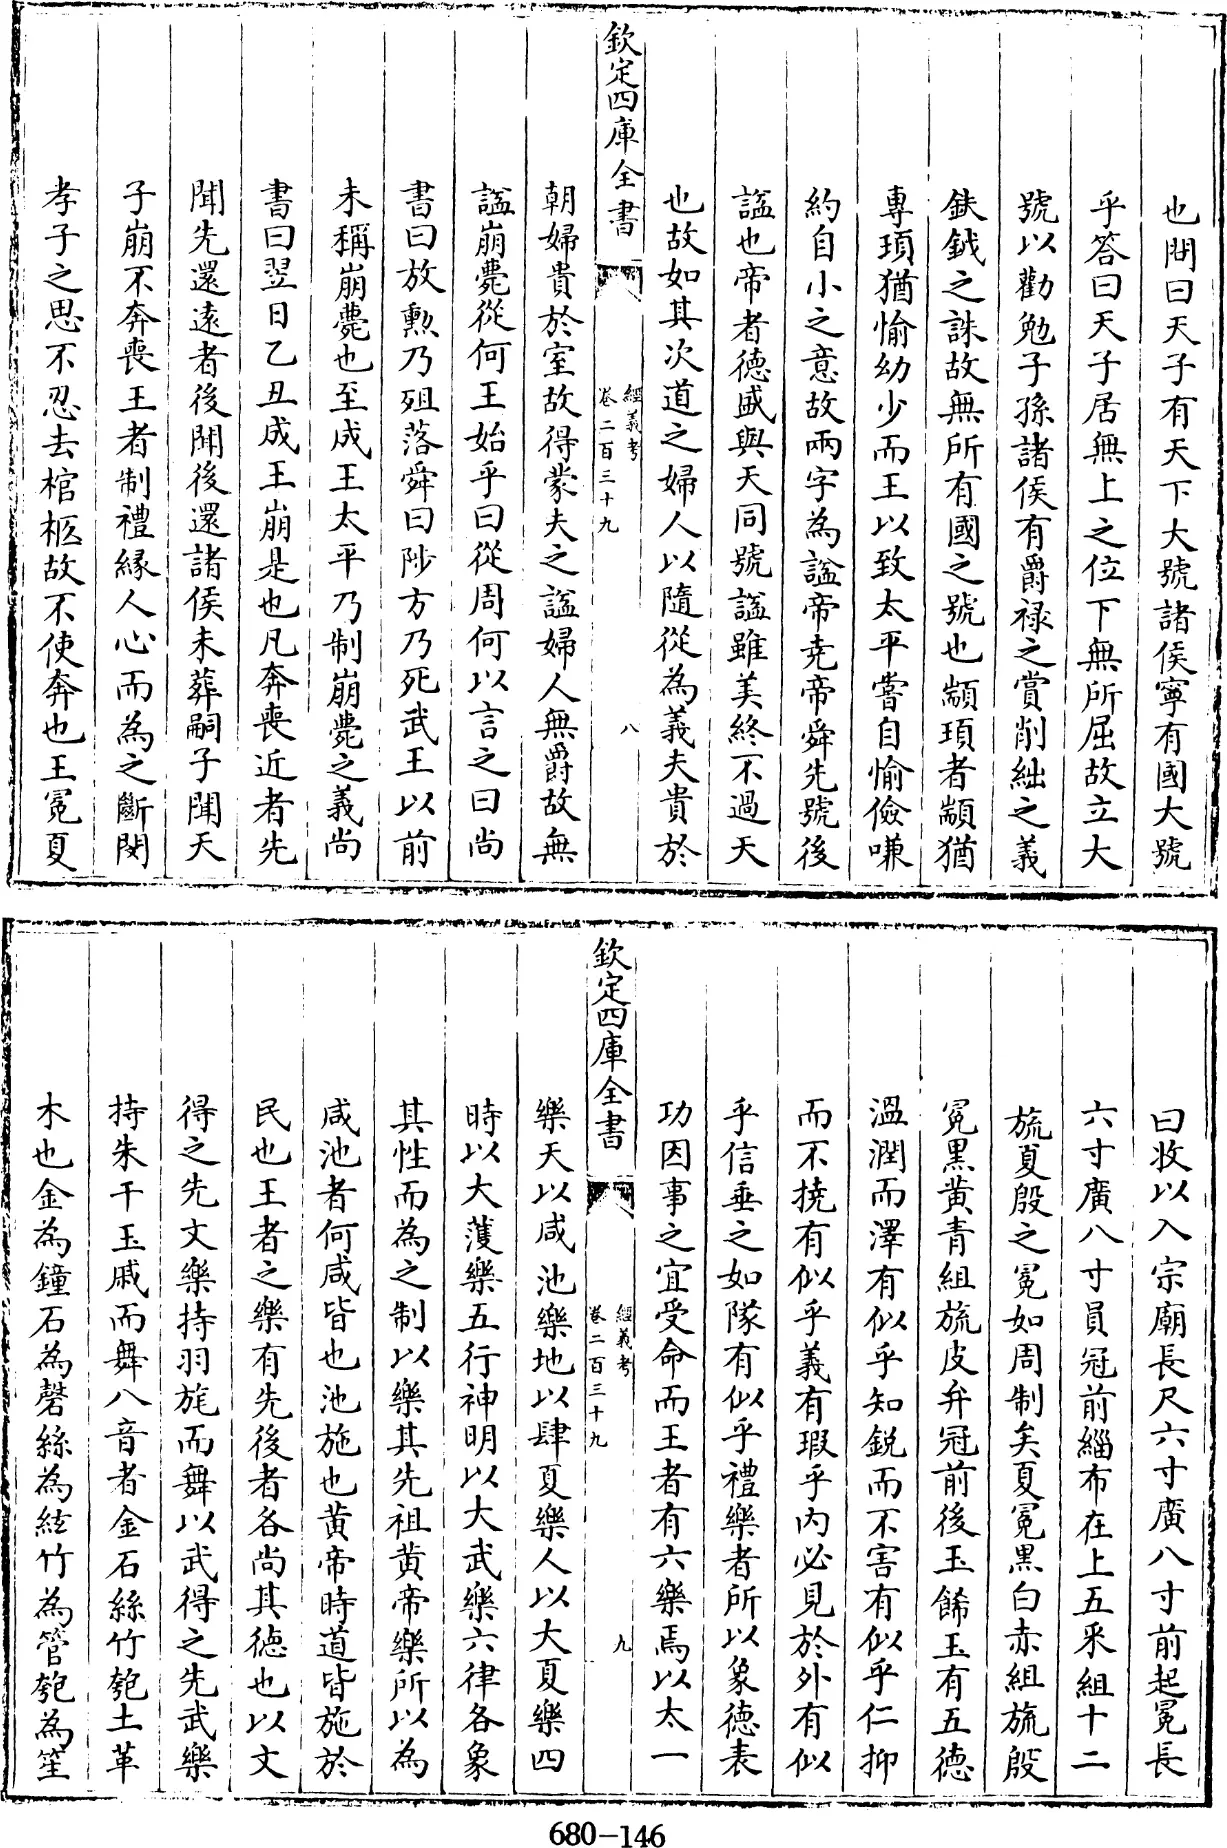 也問曰天子有天下大號諸侯寧有國大號
乎答曰天子居無上之位下無所屈故立大
號以勸勉子孫諸侯有爵禄之賞削絀之義
鈇鉞之誅故無所有國之號也顓頊者顓猶
專頊猶愉幼少而王以致太平嘗自愉儉嗛
約自小之意故兩字為諡帝堯帝舜先號後
諡也帝者德盛與天同號諡雖美終不過天
也故如其次道之婦人以隨從為義夫貴於
欽定四庫全書
經義考
卷二百三十九
八
朝婦貴於室故得蒙夫之諡婦人無爵故無
諡崩薨從何王始乎曰從周何以言之曰尚
書曰放勲乃殂落舜曰陟方乃死武王以前
未稱崩薨也至成王太平乃制崩薨之義尚
書曰翌日乙丑成王崩是也凡奔喪近者先
聞先還逺者後聞後還諸侯未葬嗣子聞天
子崩不奔喪王者制禮縁人心而為之斷閔
孝子之思不忍去棺柩故不使奔也王冕夏
曰收以入宗廟長尺六寸廣八寸前起冕長
六寸廣八寸員冠前緇布在上五采組十二
旒夏殷之冕如周制矣夏冕黒白赤組旒殷
冕黒黄青組旒皮弁冠前後玉餙玉有五德
溫潤而澤有似乎知鋭而不害有似乎仁抑
而不撓有似乎義有瑕乎内必見於外有似
乎信垂之如隊有似乎禮樂者所以象德表
功因事之宜受命而王者有六樂焉以太一
欽定四庫全書
經義考
卷二百三十九
九
樂天以咸池樂地以肆夏樂人以大夏樂四
時以大濩樂五行神明以大武樂六律各象
其性而為之制以樂其先祖黄帝樂所以為
咸池者何咸皆也池施也黄帝時道皆施於
民也王者之樂有先後者各尚其德也以文
得之先文樂持羽旄而舞以武得之先武樂
持朱干玉戚而舞八音者金石絲竹匏土革
木也金為鐘石為磬絲為絃竹為管匏為笙
680-146